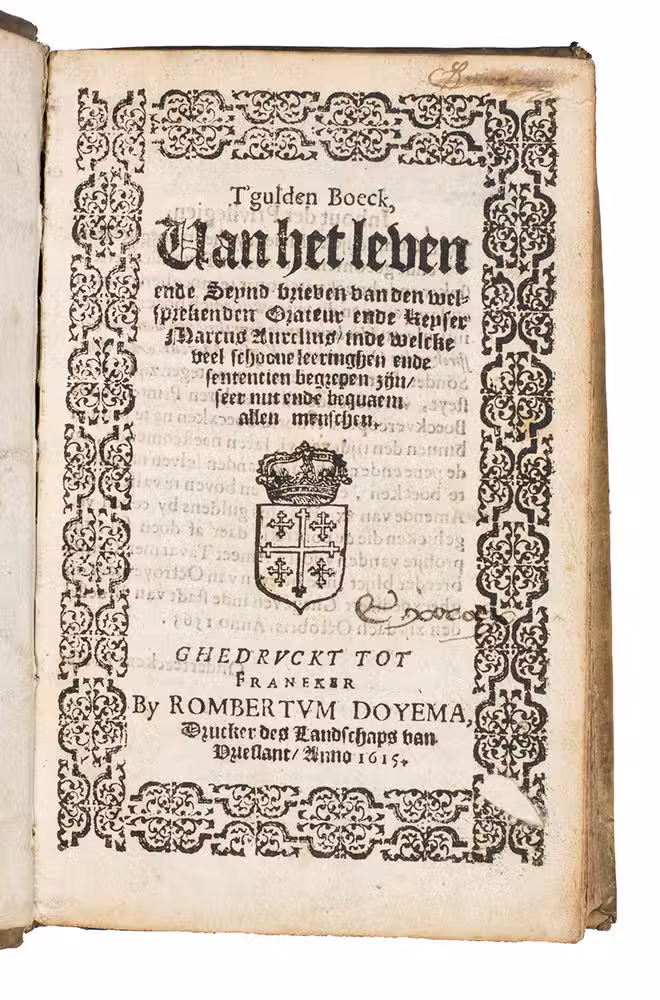 T'gulden Boeck,
Van het leven
ende Seynd brieven van den wel-
sprekenden Orateur ende Keyser
Marcus Aurelius/ inde welcke
veel schoone leeringhen ende
sententien begrepen zijn/
seer nut ende bequaem
allen menschen.
GHEDRVCKT TOT
FRANEKER
By ROMBERTVM DOYEMA,
Drucker des Landschaps van
Vrieslant/ Anno 1615.